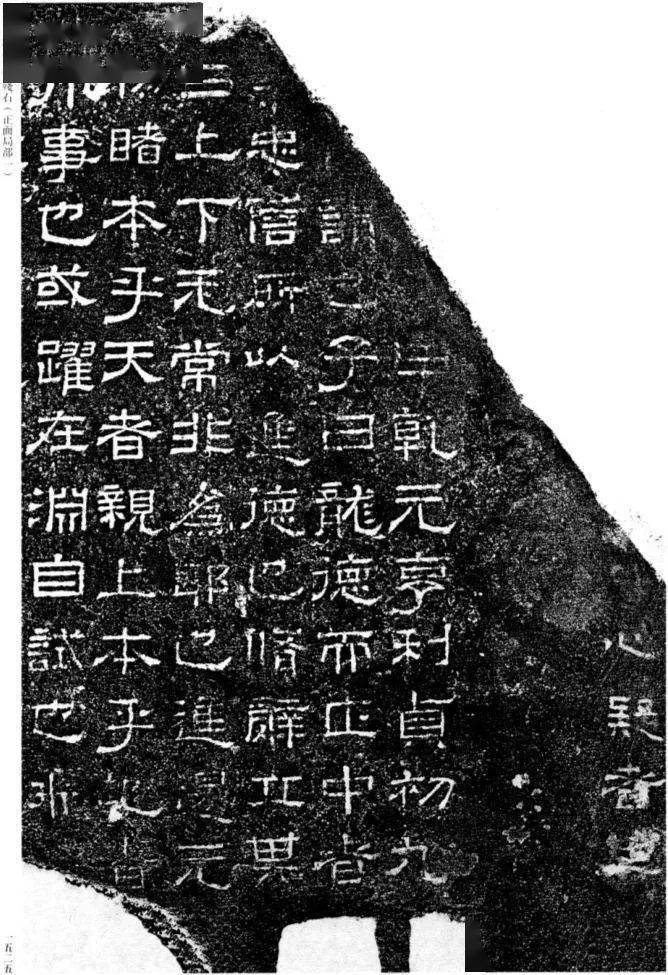 心疑者
乾元亨利貞初九
謂也子曰龍德而正中者
忠信所以進德也脩辭立其
曰上下无常非爲邪也進退无
睹本乎天者親上本乎地者
事也或躍在淵自試也飛
殘石（正面局部一）
一五二五